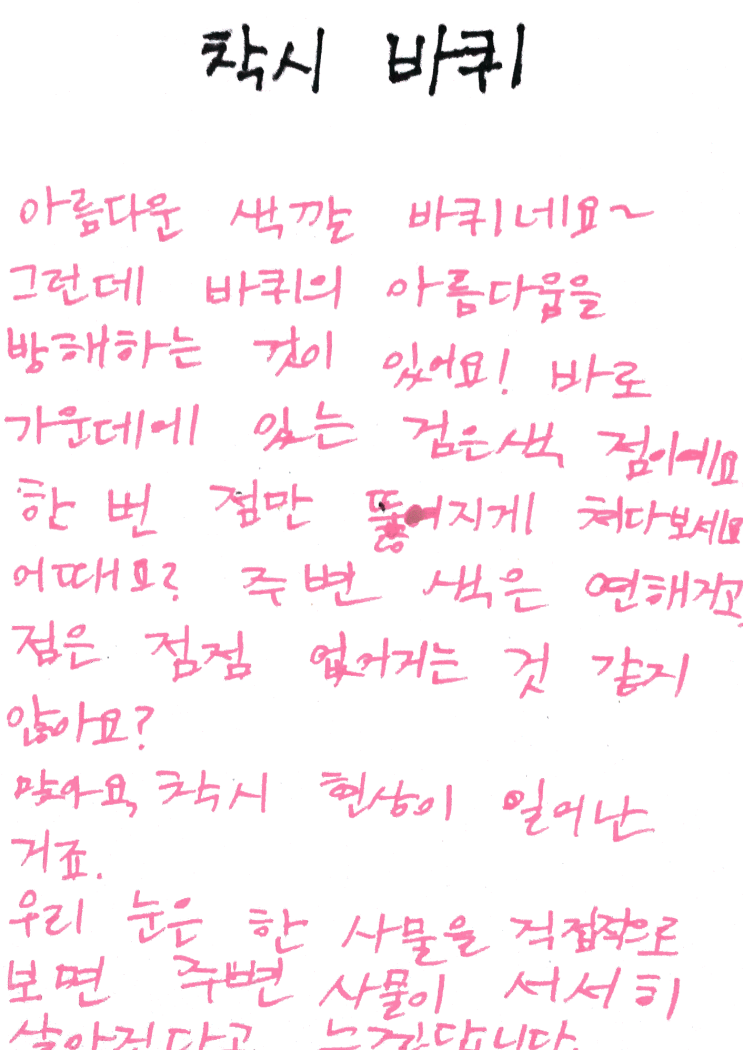 착시 바퀴
아름다운 색깔 바퀴네요~
그런데 바퀴의 아름다움을
방해하는 것이 있어요! 바로
가운데에 있는 검은색 점이에요
한 번 점만 뚫어지게 쳐다보세요
어때요? 주변 색은 연해지고,
점은 점점 없어지는 것 같지
않아요?
맞아요, 착시 현상이 일어난
거죠.
우리 눈은 한 사물을 직접적으로
보면 주변 사물이 서서히